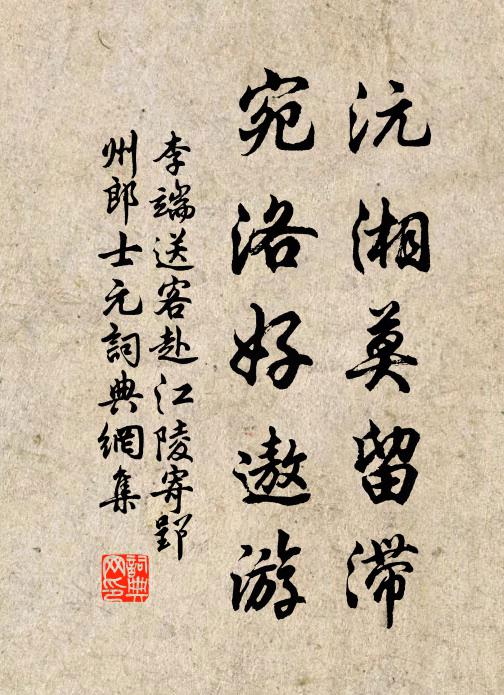 沅湘莫留滞
宛洛好遨游
李端送客赴江陵寄郢
州郎士元詞典網集
詞典
网印